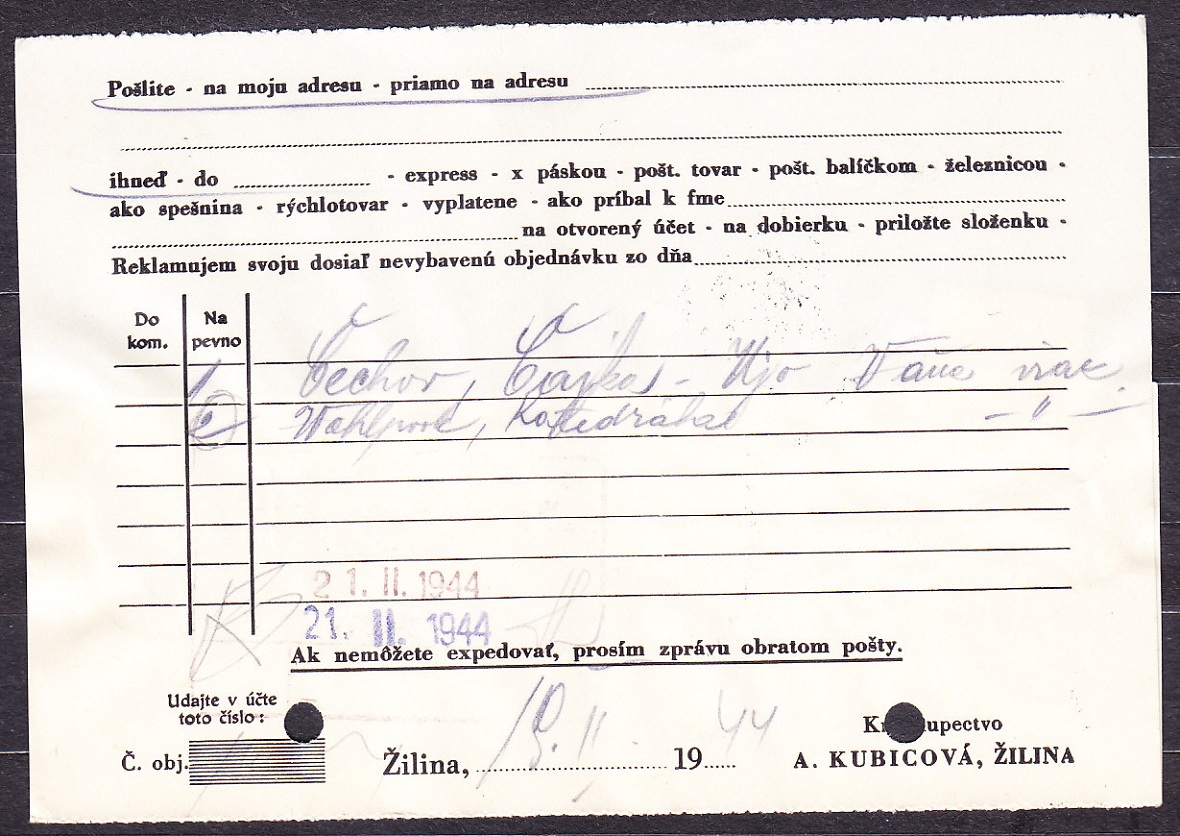 Pošlite - na moju adresu - priamo na adresu
ihneď - do - express - x páskou - pošt. tovar - pošt. balíčkom - železnicou -
ako spešnina - rýchlotovar - vyplatene - ako príbal k fme
na otvorený účet - na dobierku - priložte složenku -
Reklamujem svoju dosiaľ nevybavenú objednávku zo dňa
Do kom.
Na pevno
1 Čechov, - Ujo Váňa viac.
Katedrála - " -
21. II. 1944
21. II. 1944
Ak nemôžete expedovať, prosím zprávu obratom pošty.
Udajte v účte
toto číslo:
Č. obj.
Žilina, II. 1944
A. KUBICOVÁ, ŽILINA